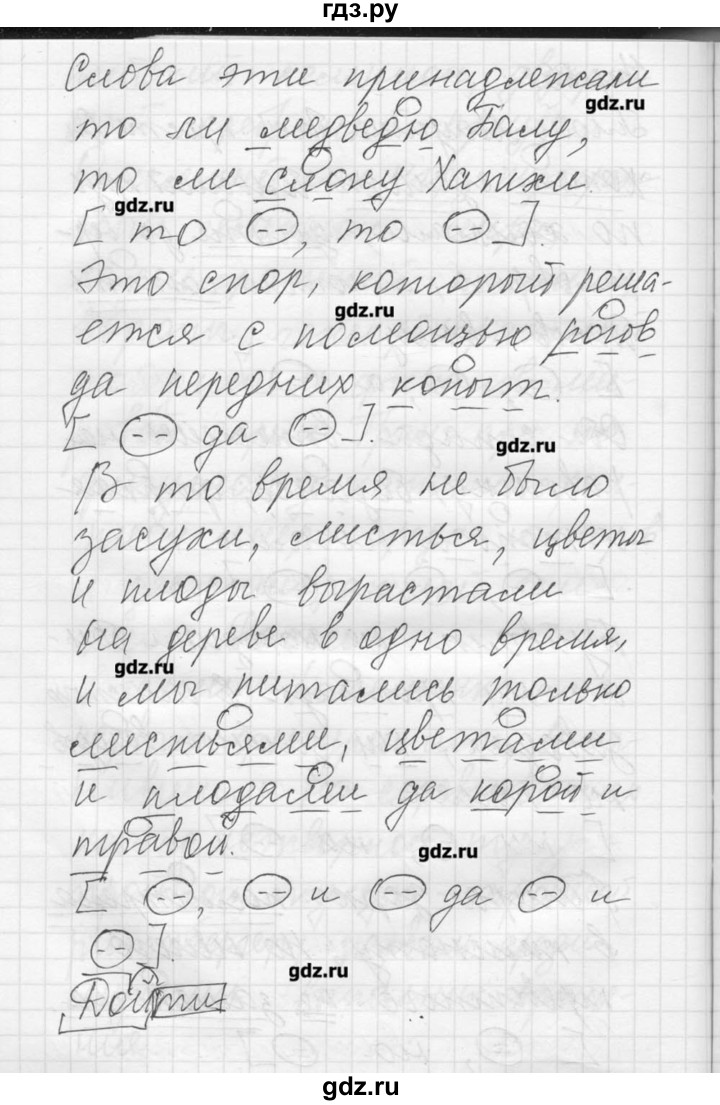 гдз.ру
Слова эти принадлежали
gdz.ru
то ли медведю Балу,
то ли слону Хатхи.
gdz.ru
[ то (--), то (--) ].
Это спор, который реша-
gdz.ru
ется с помощью рогов
да передних копыт.
[ (--) да (--) ].
gdz.ru
В то время не было
засухи, листья, цветы
и плоды вырастали
на дереве в одно время,
gdz.ru
и мы питались только
листьями, цветами
и плодами да корой и
травой.
gdz.ru
[ (--), (--) и (--) да (--) и
(--) ].
gdz.ru
Дойти
gdz.ru